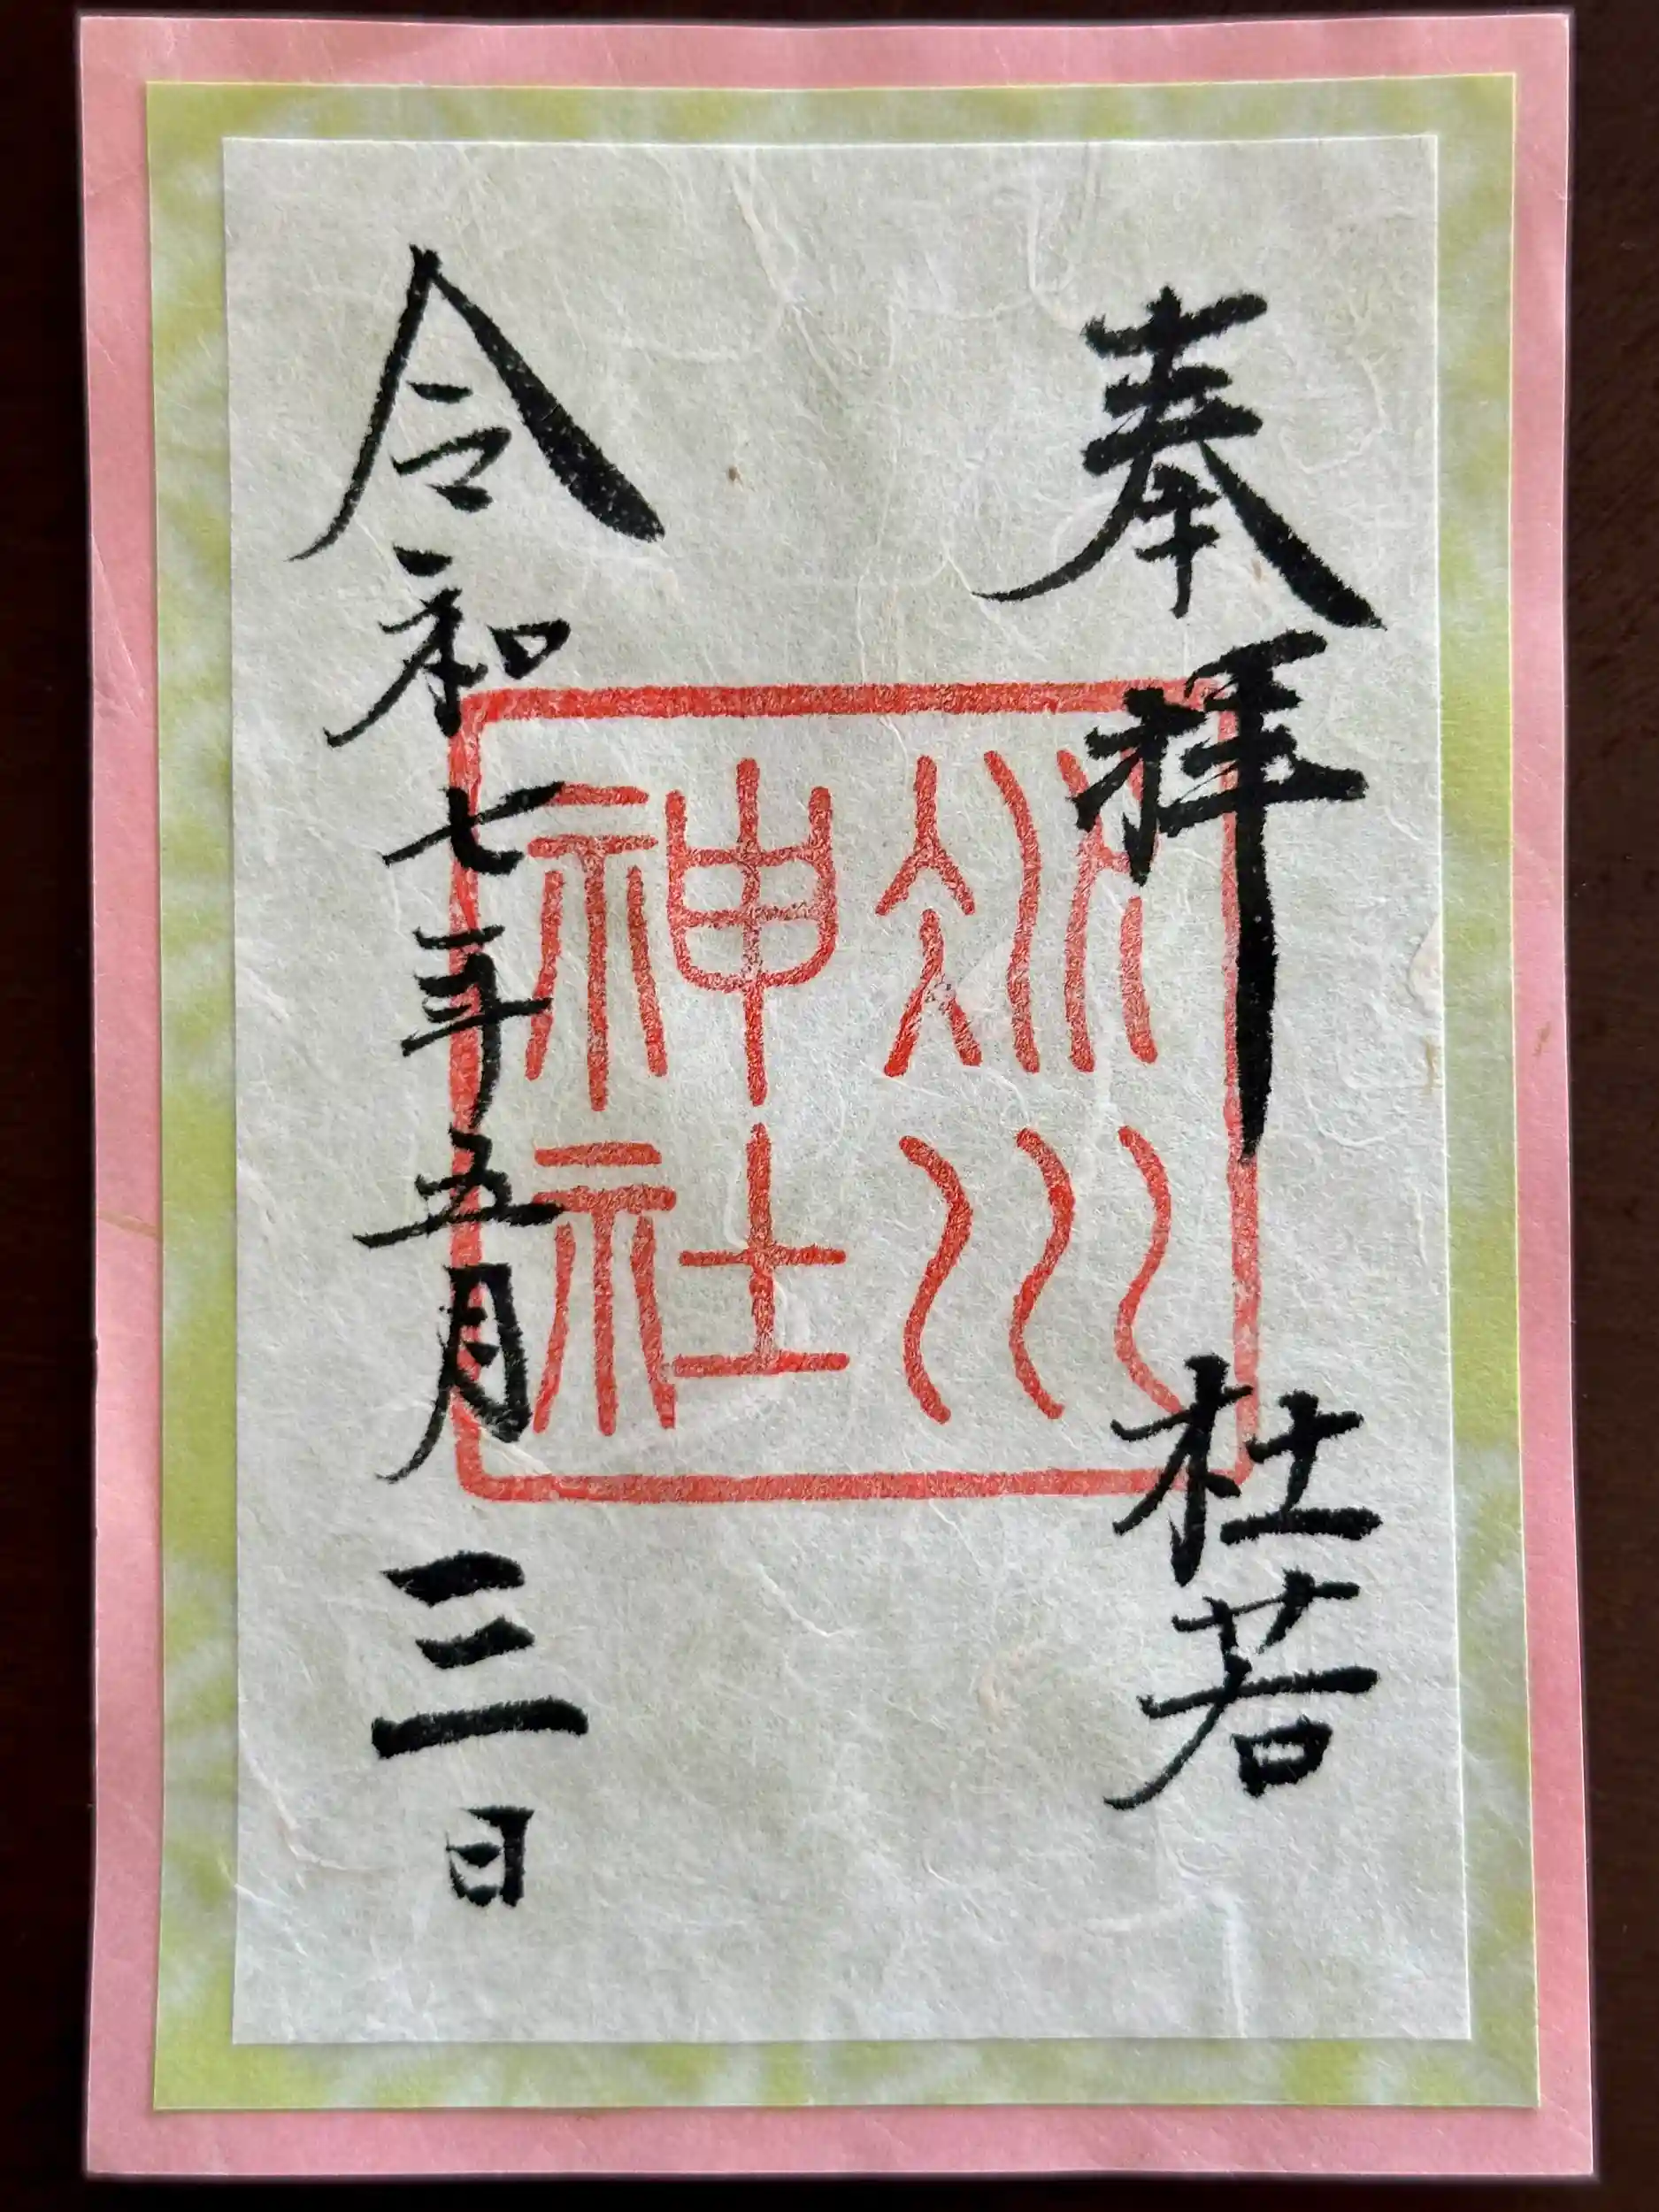 奉拝　杜若
冰川
神社
令和七年五月三日